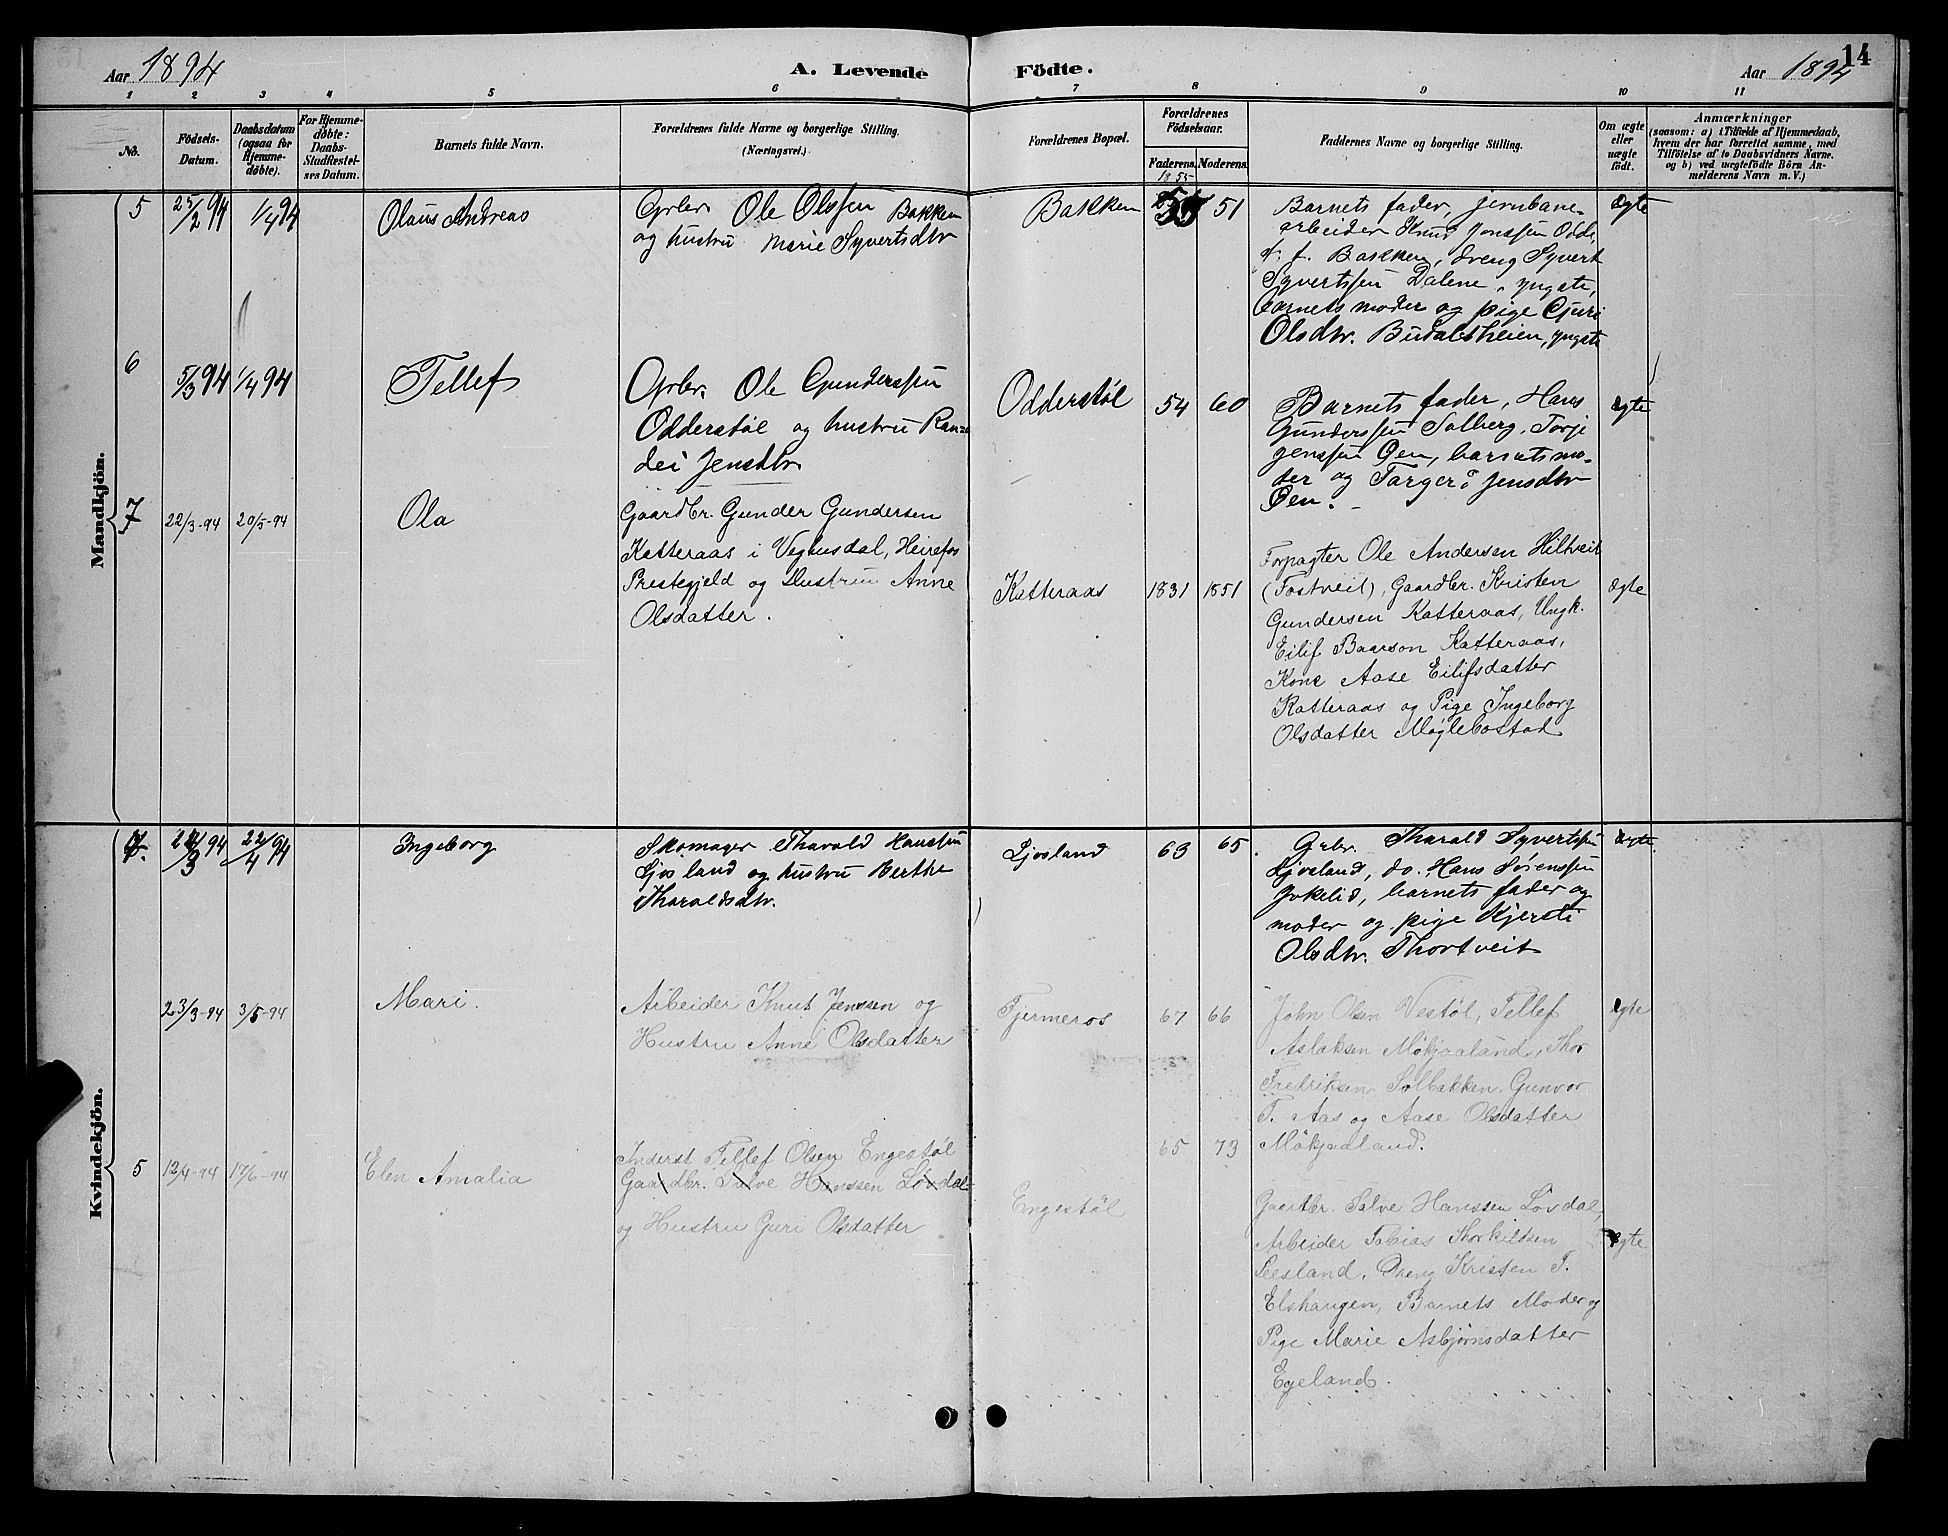 Aar 1894 A. Levende Födte. Aar 1894 14
1 2 3 4 5 6 7 8 9 10 11
No.
Födsels-Datum.
Daabsdatum (ogsaa for Hjemmedöbte).
For Hjemmedøbte: Daabs-Stadfæstelses Datum.
Barnets fulde Navn.
Forældrenes fulde Navne og borgerlige Stilling.
(Næringsvei.)
Forældrenes Bopæl.
Forældrenes Födselsaar.
Faderens. Moderens.
Faddernes Navne og borgerlige Stilling.
Om ægte eller uægte födt.
Anmærkninger
(saasom: a) i Tilfælde af Hjemmedaab, hvem der har forrettet samme, med Tilföielse af to Daabsvidners Navne. og b) ved uægtefödte Börn Anmelderens Navn m. V.)
Mandkjön.
5 25/2 94 1/4 94 Olaus Andreas
Grbr. Ole Olssen Bakken
og hustru Marie Syvertsdtr
Bakken 1855 51
Barnets fader, jernbane-
arbeider Knud Jonssen Odde,
Bakken, dreng Syvert
Syvertssen Dalene, yngste,
barnets moder og pige Guri
Olsdtr. Budalsheien, yngste
ægte
6 5/3 94 1/4 94 Tellef
Grbr. Ole Gunderssen
Odderstøl og hustru Ran-
dei Jensdtr
Odderstøl 54 60
Barnets fader, Hans
Gunderssen Solberg, Torje
Jenssen Øen, barnets mo-
der og Targer Jensdtr
Øen.
ægte
7 22/3-94 20/5-94 Ola
Gaardbr. Gunder Gundersen
Katteraas i Vegusdal, Heirefos
Prestegjeld og Hustru Anne
Olsdatter.
Katteraas 1831 1851
Forpagter Ole Andersen Hiltveit
(Fostveit), Gaardbr. Kristen
Gundersen Katteraas, Ungk.
Eilef Baarson Katteraas,
Kone Aase Eilifsdatter
Katteraas og Pige Ingeborg
Olsdatter Møglebostad
ægte
Kvindekjön.
22/4 94 Ingeborg
Skomager Tharald Hanssen
Ljosland og hustru Berthe
Tharaldsdtr.
Ljosland 63 65
Grbr. Tharald Syvertssen
Ljosland, do. Hans Sørenssen
Jokelid, barnets fader og
moder og pige Kjersti
Olsdtr. Thortveit
ægte
23/3-94 3/5-94 Mari.
Arbeider Knut Jenssen og
Hustru Anne Olsdatter
Tjermeros 67 66
John Olsen Vestøl, Tellef
Aslaksen Møkjaaland, Thor
Fredriksen Solbakken, Gunvor
T. Aas og Aase Olsdatter
Møkjaaland.
ægte
5 12/4-94 17/6-94 Elen Amalia
Inderst Tellef Olsen Engestøl
Gaardbr. Salve Hanssen Løvdal
og Hustru Guri Olsdatter
Engestøl 65 73
Gaardbr. Salve Hanssen Løvdal,
Arbeider Tobias Thorkildsen
Leesland, Dreng Kristen T.
Elshaugen, Barnets Moder og
Pige Marie Asbjørnsdatter
Egeland.
ægte